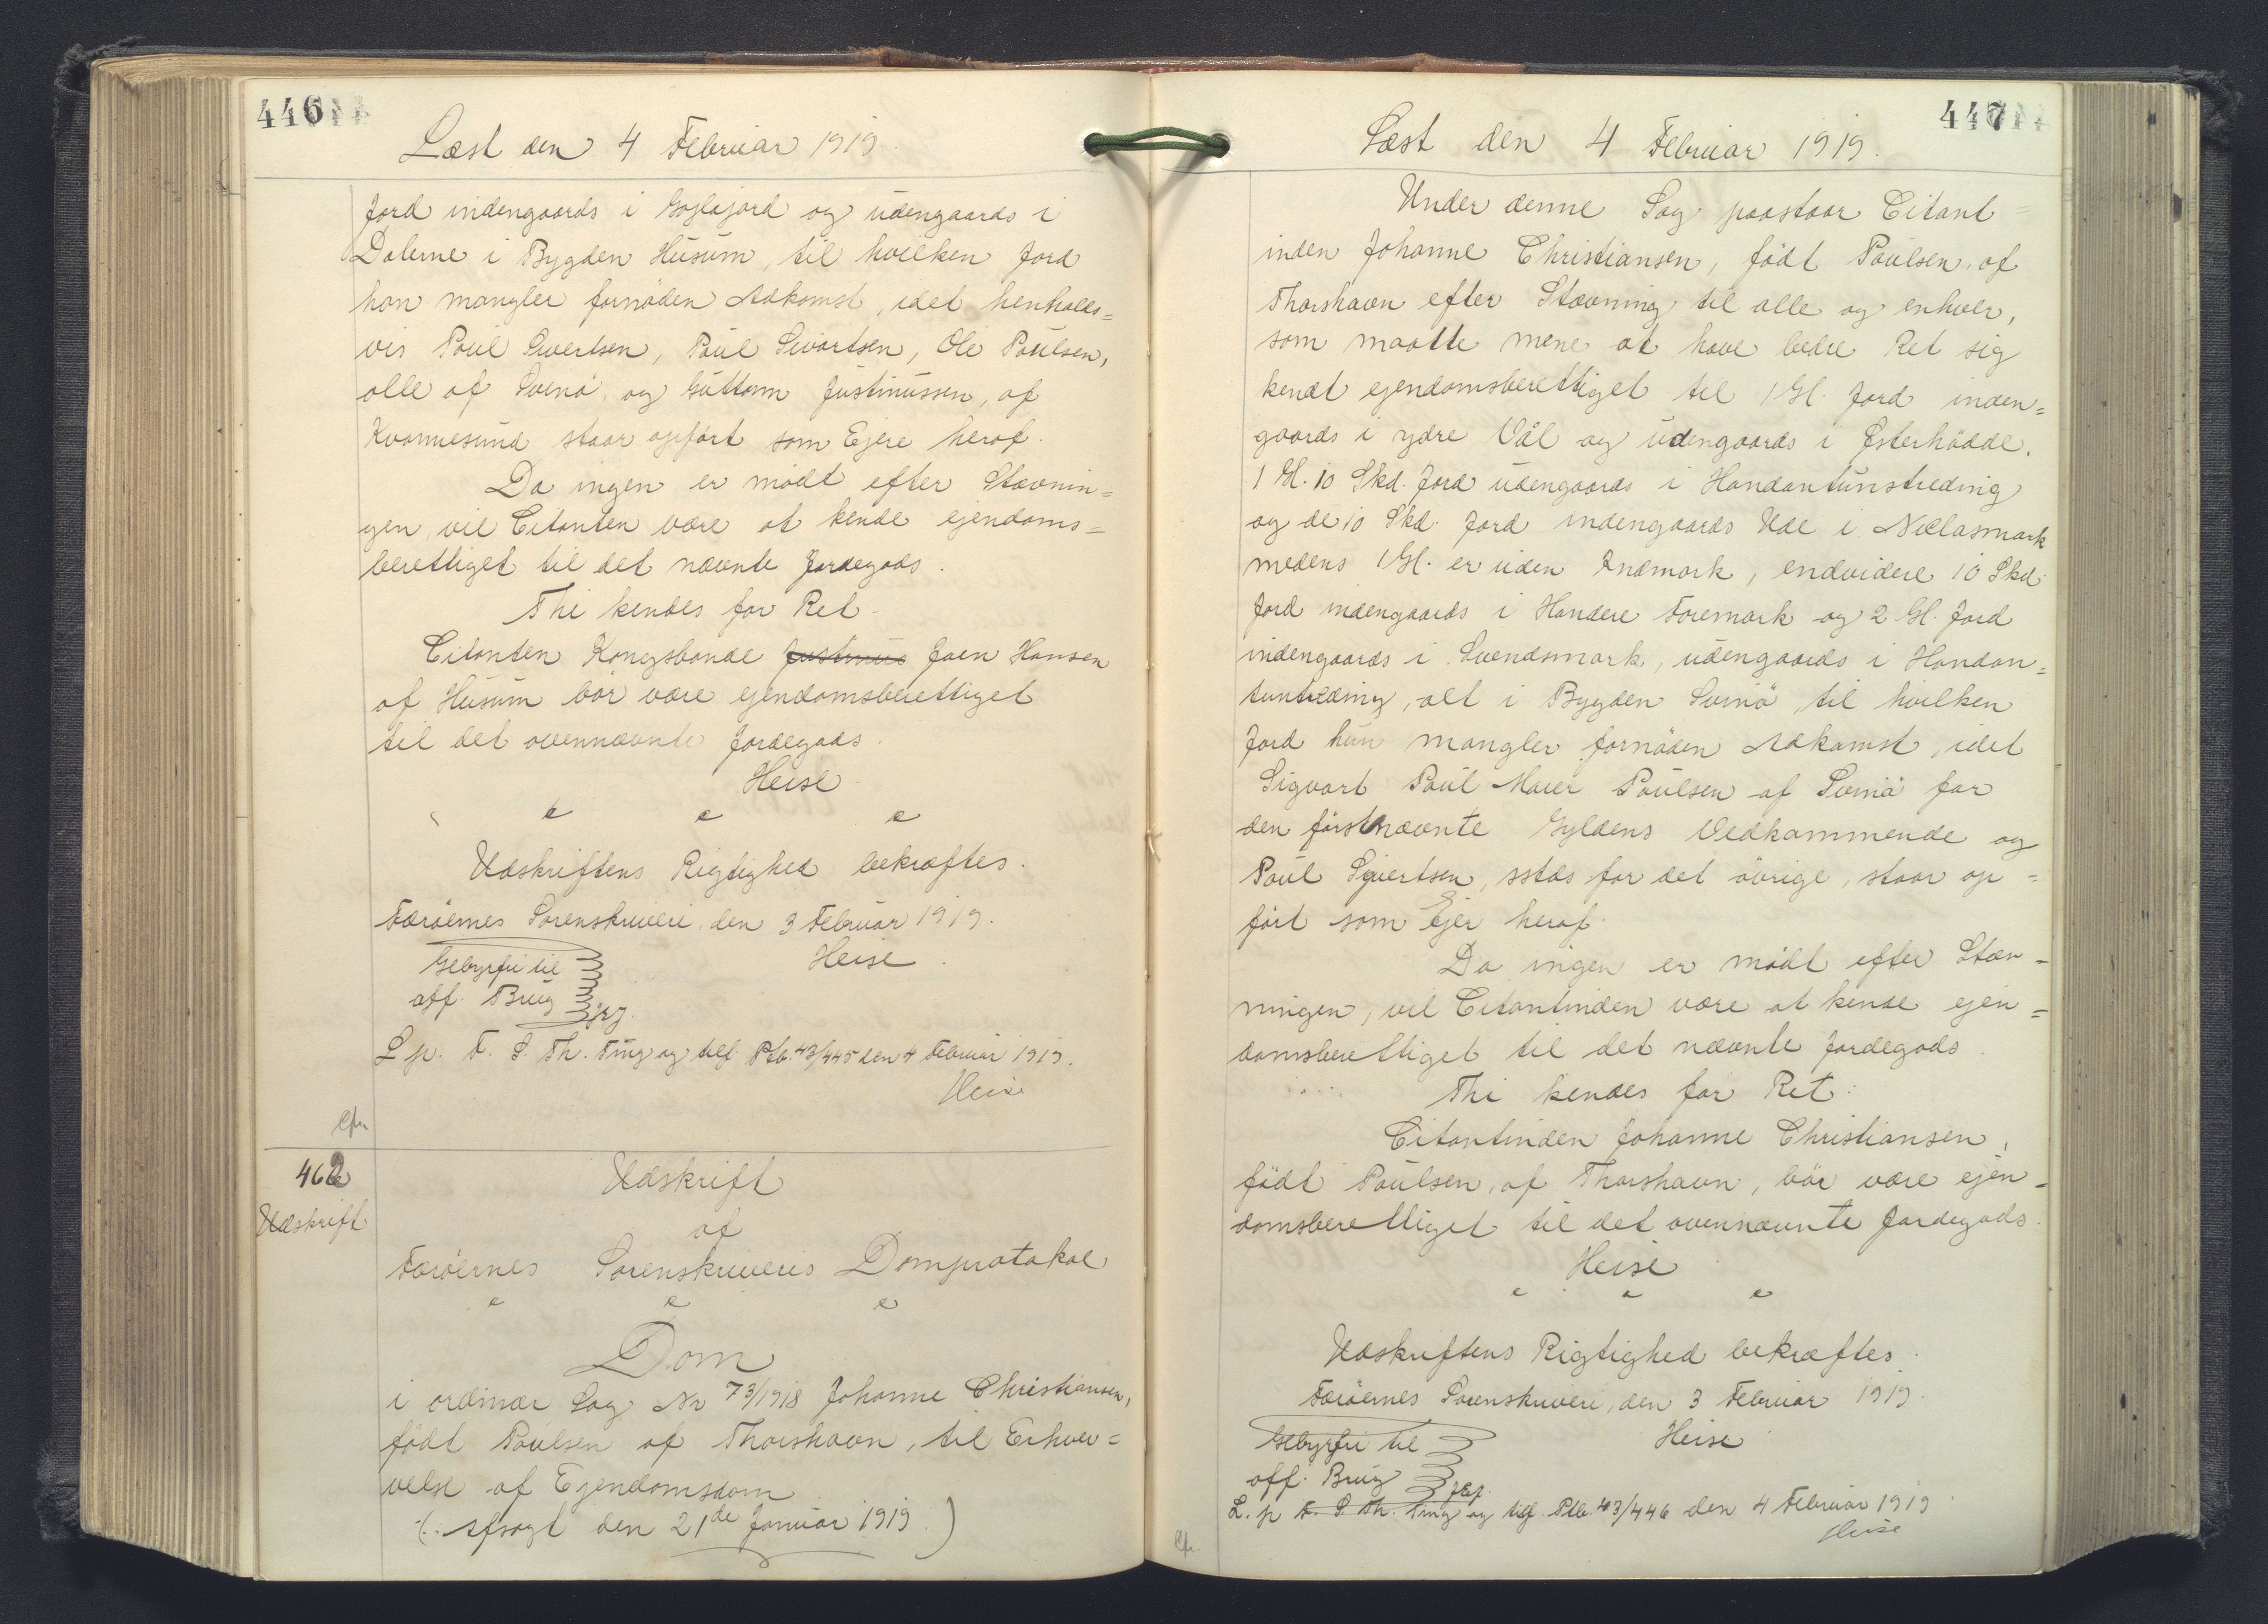 446
Læst den 4 Februar 1919.
Jord indengaards i Gojlajord og udengaards i
Dalerne i Bygden Husum, til hvilken Jord
han mangler fornöden Adkomst, idet henholds=
vis Poul Sivertsen, Poul Sivartsen, Ole Poulsen,
alle af Svinö, og Guttorm Justinussen, af
Kvannesund staar opfört som Ejere heraf.
Da ingen er mödt efter Stævnin=
gen, vil Citanten være at kende ejendoms=
berettiget til det nævnte Jordegods.
Thi kendes for Ret
Citanten Kongsbonde Justinus Joen Hansen
af Husum bör være ejendomsberettiget
til det ovennævnte Jordegods.
Heise
Udskriftens Rigtighed bekræftes.
Færöernes Sorenskriveri, den 3 Februar 1919.
Heise.
Gebyrfri til
off. Brug
L. p. F. S. Th. Ting og tilf. Ptb. 43/445 den 4 Februar 1919.
Heise
Cfr.
462
Udskrift
Udskrift
af
Færöernes Sorenskriveris Domprotokol
Dom
i ordinær Sag Nr 73/1918 Johanne Christiansen,
födt Poulsen af Thorshavn, til Erhver=
velse af Ejendomsdom
(: Afsagt den 21de Januar 1919.)
447
Læst den 4 Februar 1919.
Under denne Sag paastaar Citant=
inden Johanne Christiansen, födt Poulsen, af
Thorshavn efter Stævning til alle og enhver,
som maatte mene at have bedre Ret sig
kendt ejendomsberettiget til 1 Gl. Jord inden=
gaards i ydre Vál og udengaards i Østerhådde.
1 Gl. 10 Skd. Jord udengaards i Handantunstreding
og de 10 Skd. Jord indengaards Ude i Niclasmark
medens 1 Gl. er uden Indmark, endvidere 10 Skd.
Jord indengaards i Handere Foremark og 2 Gl. Jord
indengaards i Svendsmark, udengaards i Handan=
tuntreding, alt i Bygden Svinö, til hvilken
Jord hun mangler fornöden Adkomst, idet
Sigvart Poul Maier Poulsen af Svinö for
den förstnævnte Gyldens Vedkommende og
Poul Sivertsen, sstds for det övrige, staar op=
fört som Ejer heraf.
Da ingen er mödt efter Stæv=
ningen, vil Citantinden være at kende ejen=
domsberettiget til det nævnte Jordegods.
Thi kendes for Ret:
Citantinden Johanne Christiansen,
födt Poulsen, af Thorshavn, bör være ejen=
domsberettiget til det ovennævnte Jordegods.
Heise
Udskriftens Rigtighed bekræftes.
Færöernes Sorenskriveri, den 3 Februar 1919.
Heise
Gebyrfri til
off. Brug
L. p F. S. Th. Ting og tilf. Ptb. 43/446 den 4 Februar 1919
Heise
Cfr.